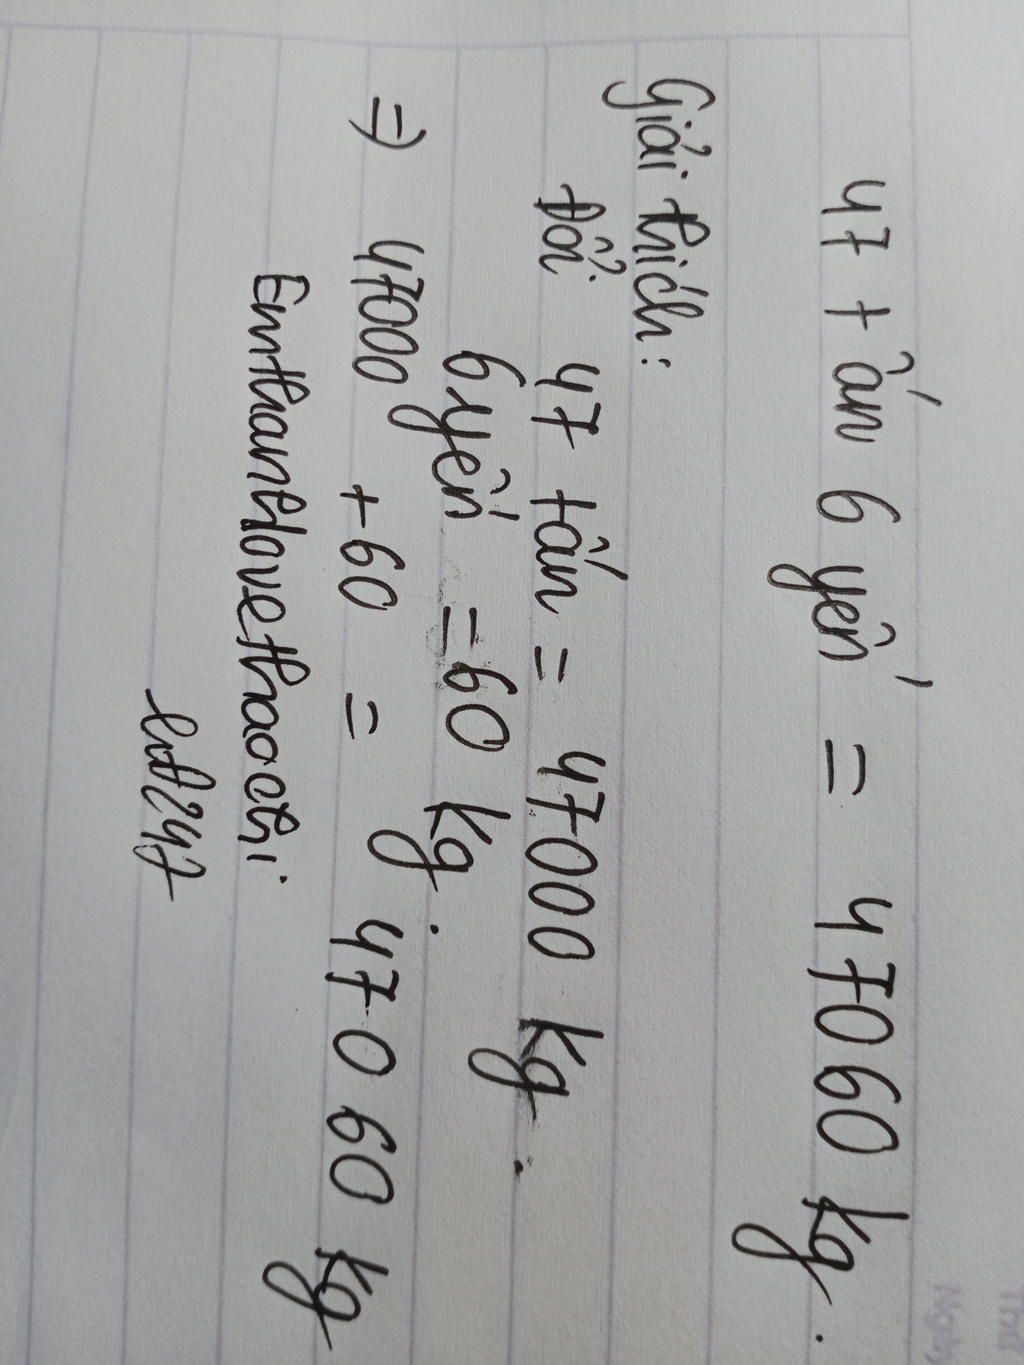 47 tấn 6 yến = 47060 kg.
Giải thích:
Đổi 47 tấn = 47000 kg.
6 yến = 60 kg.
=> 47000 + 60 = 47060 kg
Emthanhlovethaochi